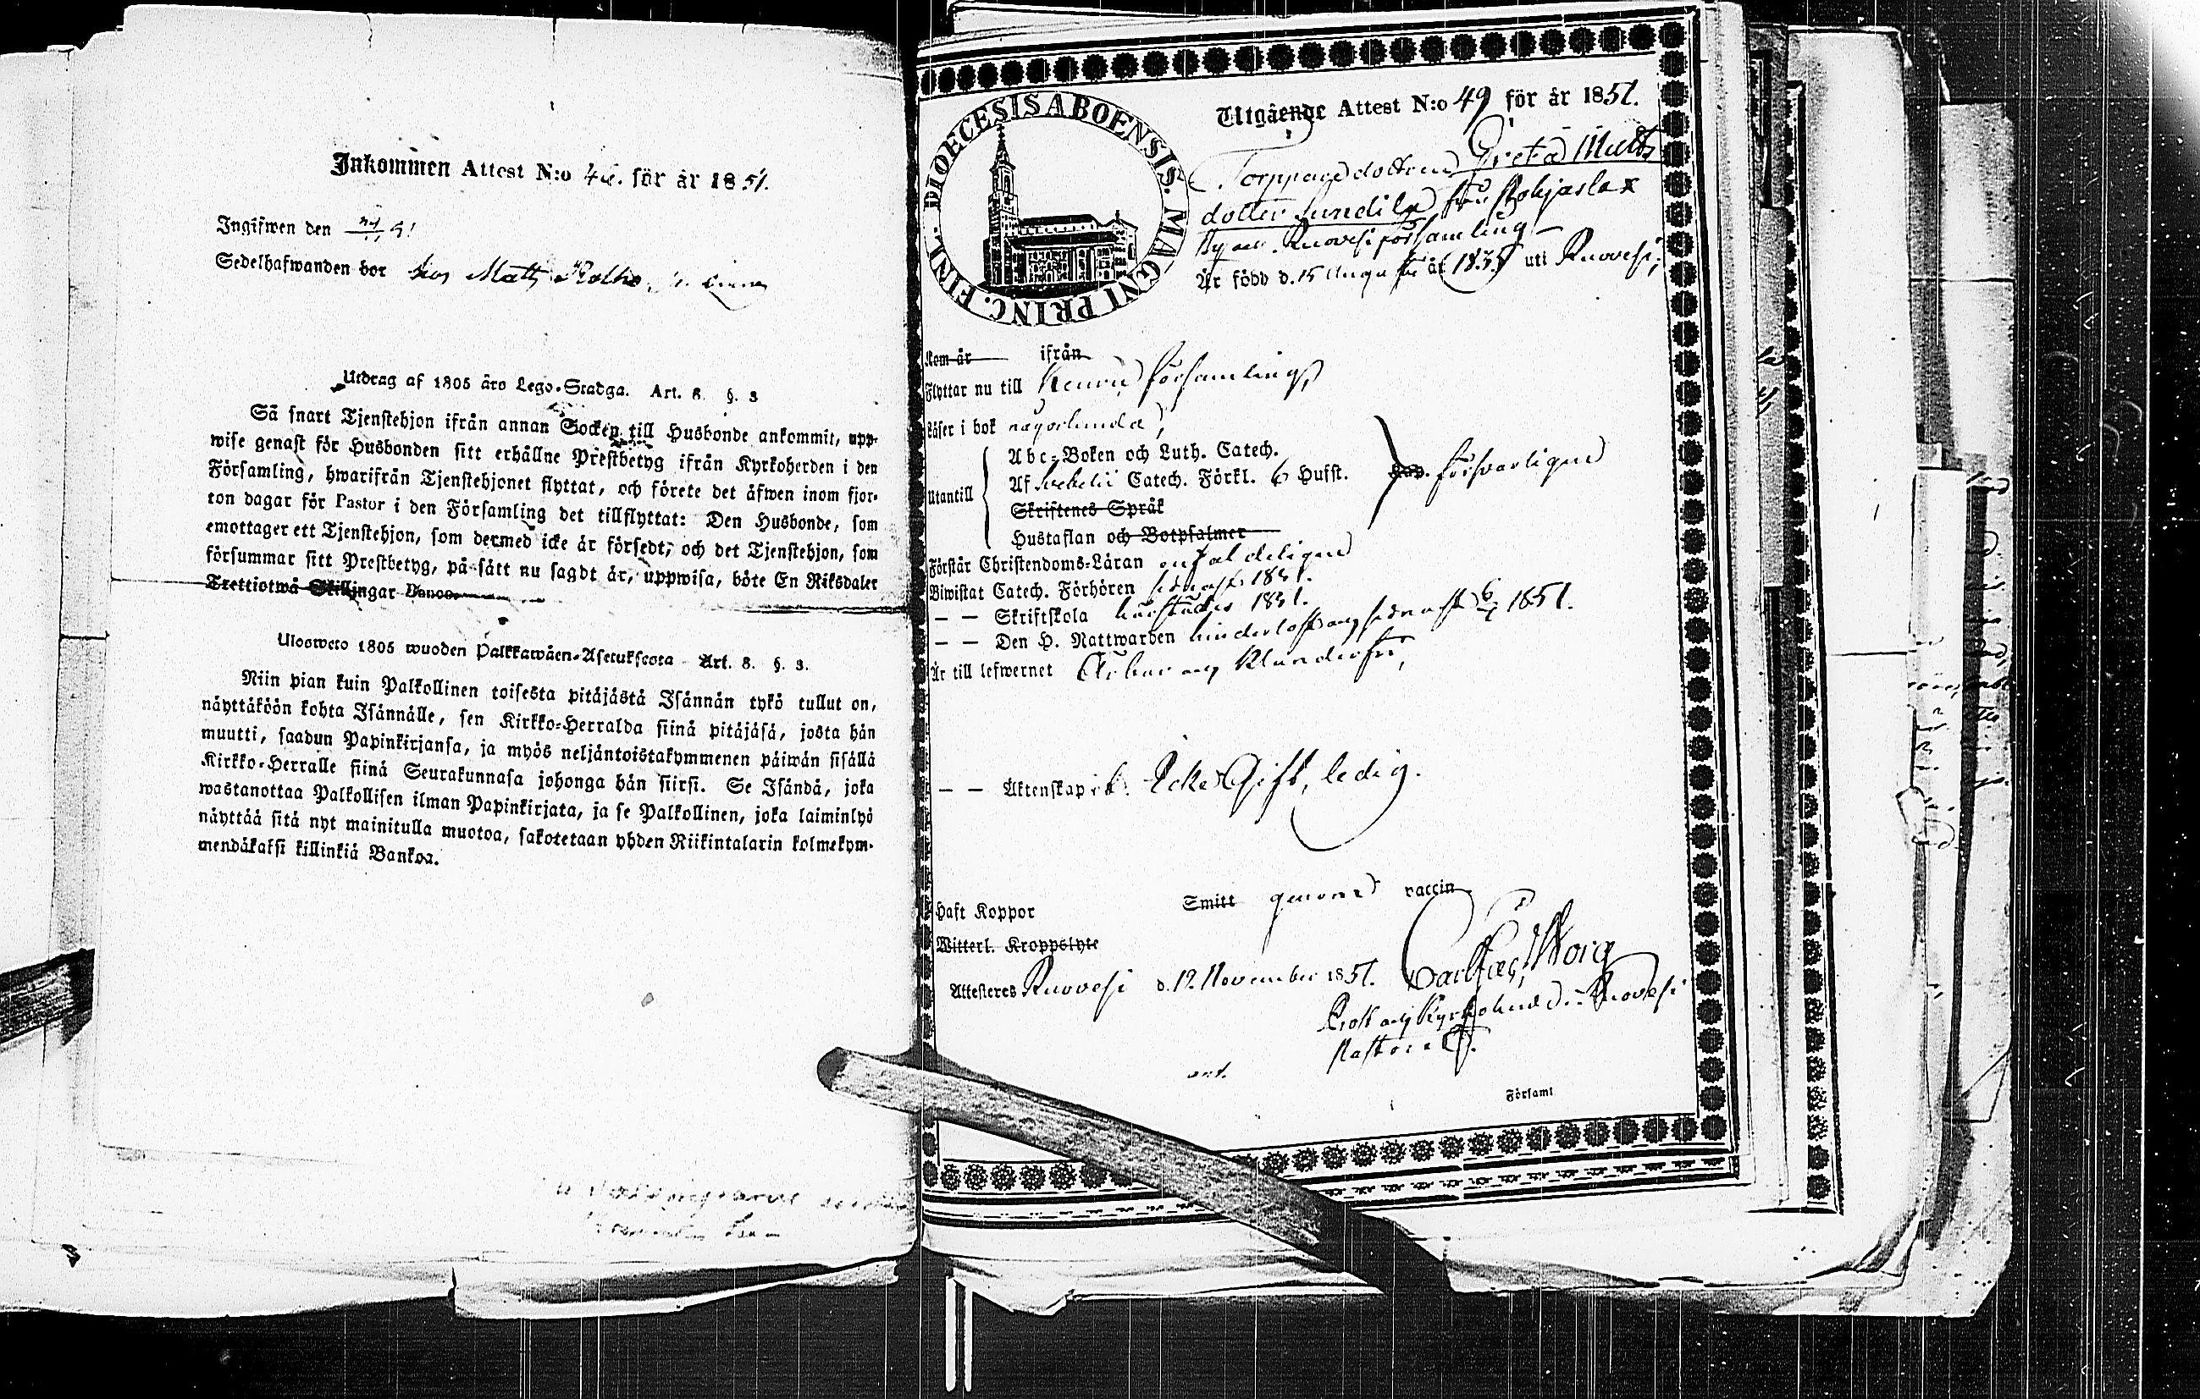 Inkommen Attest N:o för år 1851.
Ingifwen den
Sedelhafwanden bor hos Matts
Utdrag af 1805 års Lego-Stadga. Art. 8. §. 3
Så snart Tjenstehjon ifrån annan Socken till Husbonde ankommit, upp-
wise genast för Husbonden sitt erhållne Prestbetyg ifrån Kyrkoherden i den
Församling, hwarifrån Tjenstehjonet flyttat, och förete det äfwen inom fjor-
ton dagar för Pastor i den Församling det tillflyttat: Den Husbonde, som
emottager ett Tjenstehjon, som dermed icke är försedt, och det Tjenstehjon, som
försummar sitt Prestbetyg, på sätt nu sagdt är, uppwisa, böte En Riksdaler
Trettiotwå Skillingar Banco.
Ulosweto 1805 wuoden Palkkawäen-Asetuksesta Art. 8. §. 3.
Niin pian kuin Palkollinen toisesta pitäjästä Isännän tykö tullut on,
näyttäköön kohta Isännälle, sen Kirkko-Herralda siinä pitäjäsä, josta hän
muutti, saadun Papinkirjansa, ja myös neljäntoistakymmenen päiwän sisällä
Kirkko-Herralle siinä Seurakunnasa johonga hän siirsi. Se Isändä, joka
wastanottaa Palkollisen ilman Papinkirjata, ja se Palkollinen, joka laiminlyö
näyttää sitä nyt mainitulla muotoa, sakotetaan yhden Riikintalarin kolmekym-
mendäkaksi killinkiä Bankoa.
DIOECESIS ABOENSIS. MAGNI PRINC. FINL.
Utgående Attest N:o 49 för år 1851.
Torpparedottern Greta Matts
dotter från Pohjaslax
By och Ruovesi församling
Är född d. 15 Augusti år 1835 uti Ruovesi,
Kom år ifrån
Flyttar nu till Keuru församling,
Läser i bok någorlunda,
Utantill
Abc-Boken och Luth. Catech.
Af Svebelii Catech. Förkl. 6 Hufst. försvarligen
Skriftenes Språk
Hustaflan och Botpsalmer
Förstår Christendoms-Läran enfaldeligen
Biwistat Catech. Förhören sednast 1851.
— — Skriftskola härstädes 1851.
— — Den H. Nattwarden hinderlöst och sednast 1851.
Är till lefwernet Ärbar och Klanderfri,
— — Äktenskap Icke Gift, ledig.
Haft Koppor Smitt genom vaccin
Witterl. Kroppslyte
Attesteras Ruovesi d. 19. November 1851. Carl Fredr. Borg
Prost och Kyrkoherde i Ruovesi
Pastorat.
Församl